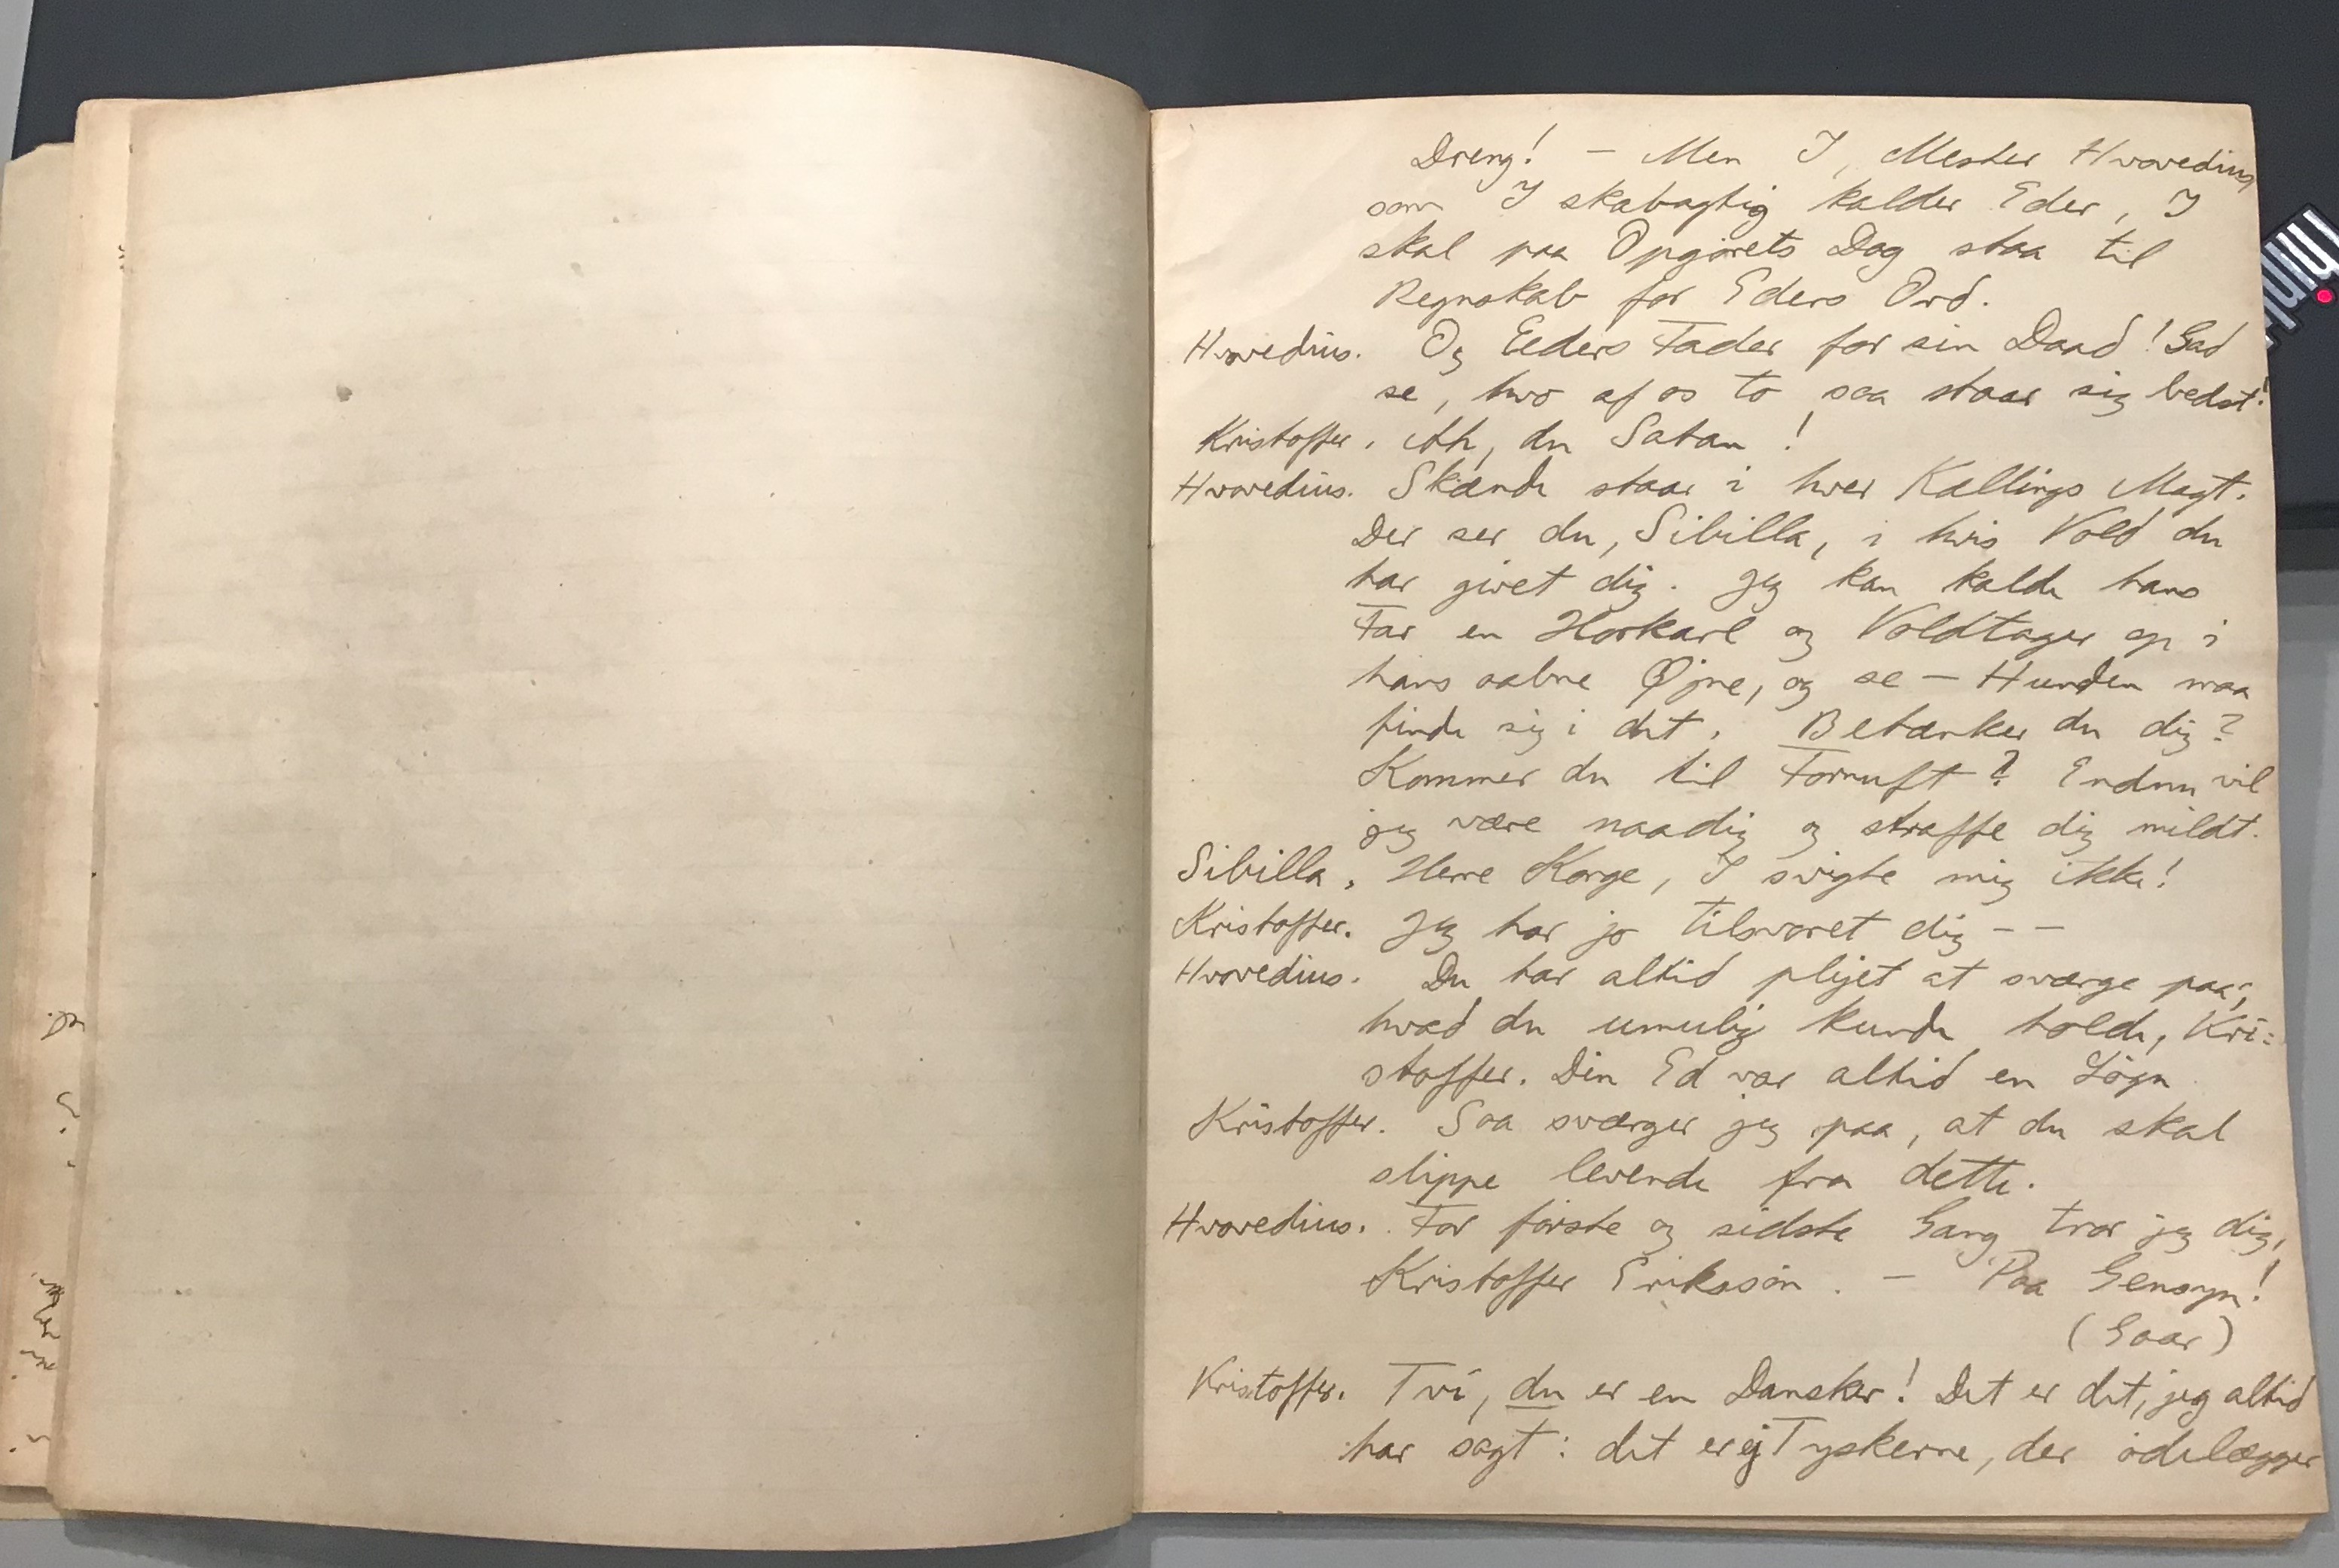 Dreng! — Men I, Mester Hvovedius
som I skabagtig kalder Eder, I
skal paa Opgörets Dag staa til
Regnskab for Eders Ord.
Hvovedius. Og Eders Fader for sin Daad! Gad
se, hvo af os to saa staar sig bedst!
Kristoffer. Ah, du Satan!
Hvovedius. Skænde staar i hver Kællings Magt.
Der ser du, Sibilla, i hvis Vold du
har givet dig. Jeg kan kalde hans
Far en Horkarl og Voldtager op i
hans aabne Øjne, og se — Hunden maa
finde sig i det. Betænker du dig?
Kommer du til Fornuft? Endnu vil
jeg være naadig og straffe dig mildt.
Sibilla. Herre Konge, I svigte mig ikke!
Kristoffer. Jeg har jo tilsvoret dig - -
Hvovedius. Du har altid plejet at sværge paa,
hvad du umulig kunde holde, Kri=
stoffer. Din Ed var altid en Lögn
Kristoffer. Saa sværger jeg paa, at du skal
slippe levende fra dette.
Hvovedius. For förste og sidste Gang tror jeg dig,
Kristoffer Erikssön. — Paa Gensyn!
(Gaar)
Kristoffer. Tvi, du er en Dansker! Det er det, jeg altid
har sagt: det er ej Tyskerne, der ödelægger